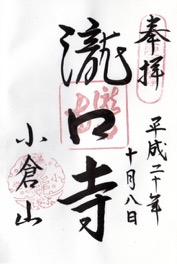 奉拝
平成二十年
十月八日
瀧口寺
小倉山